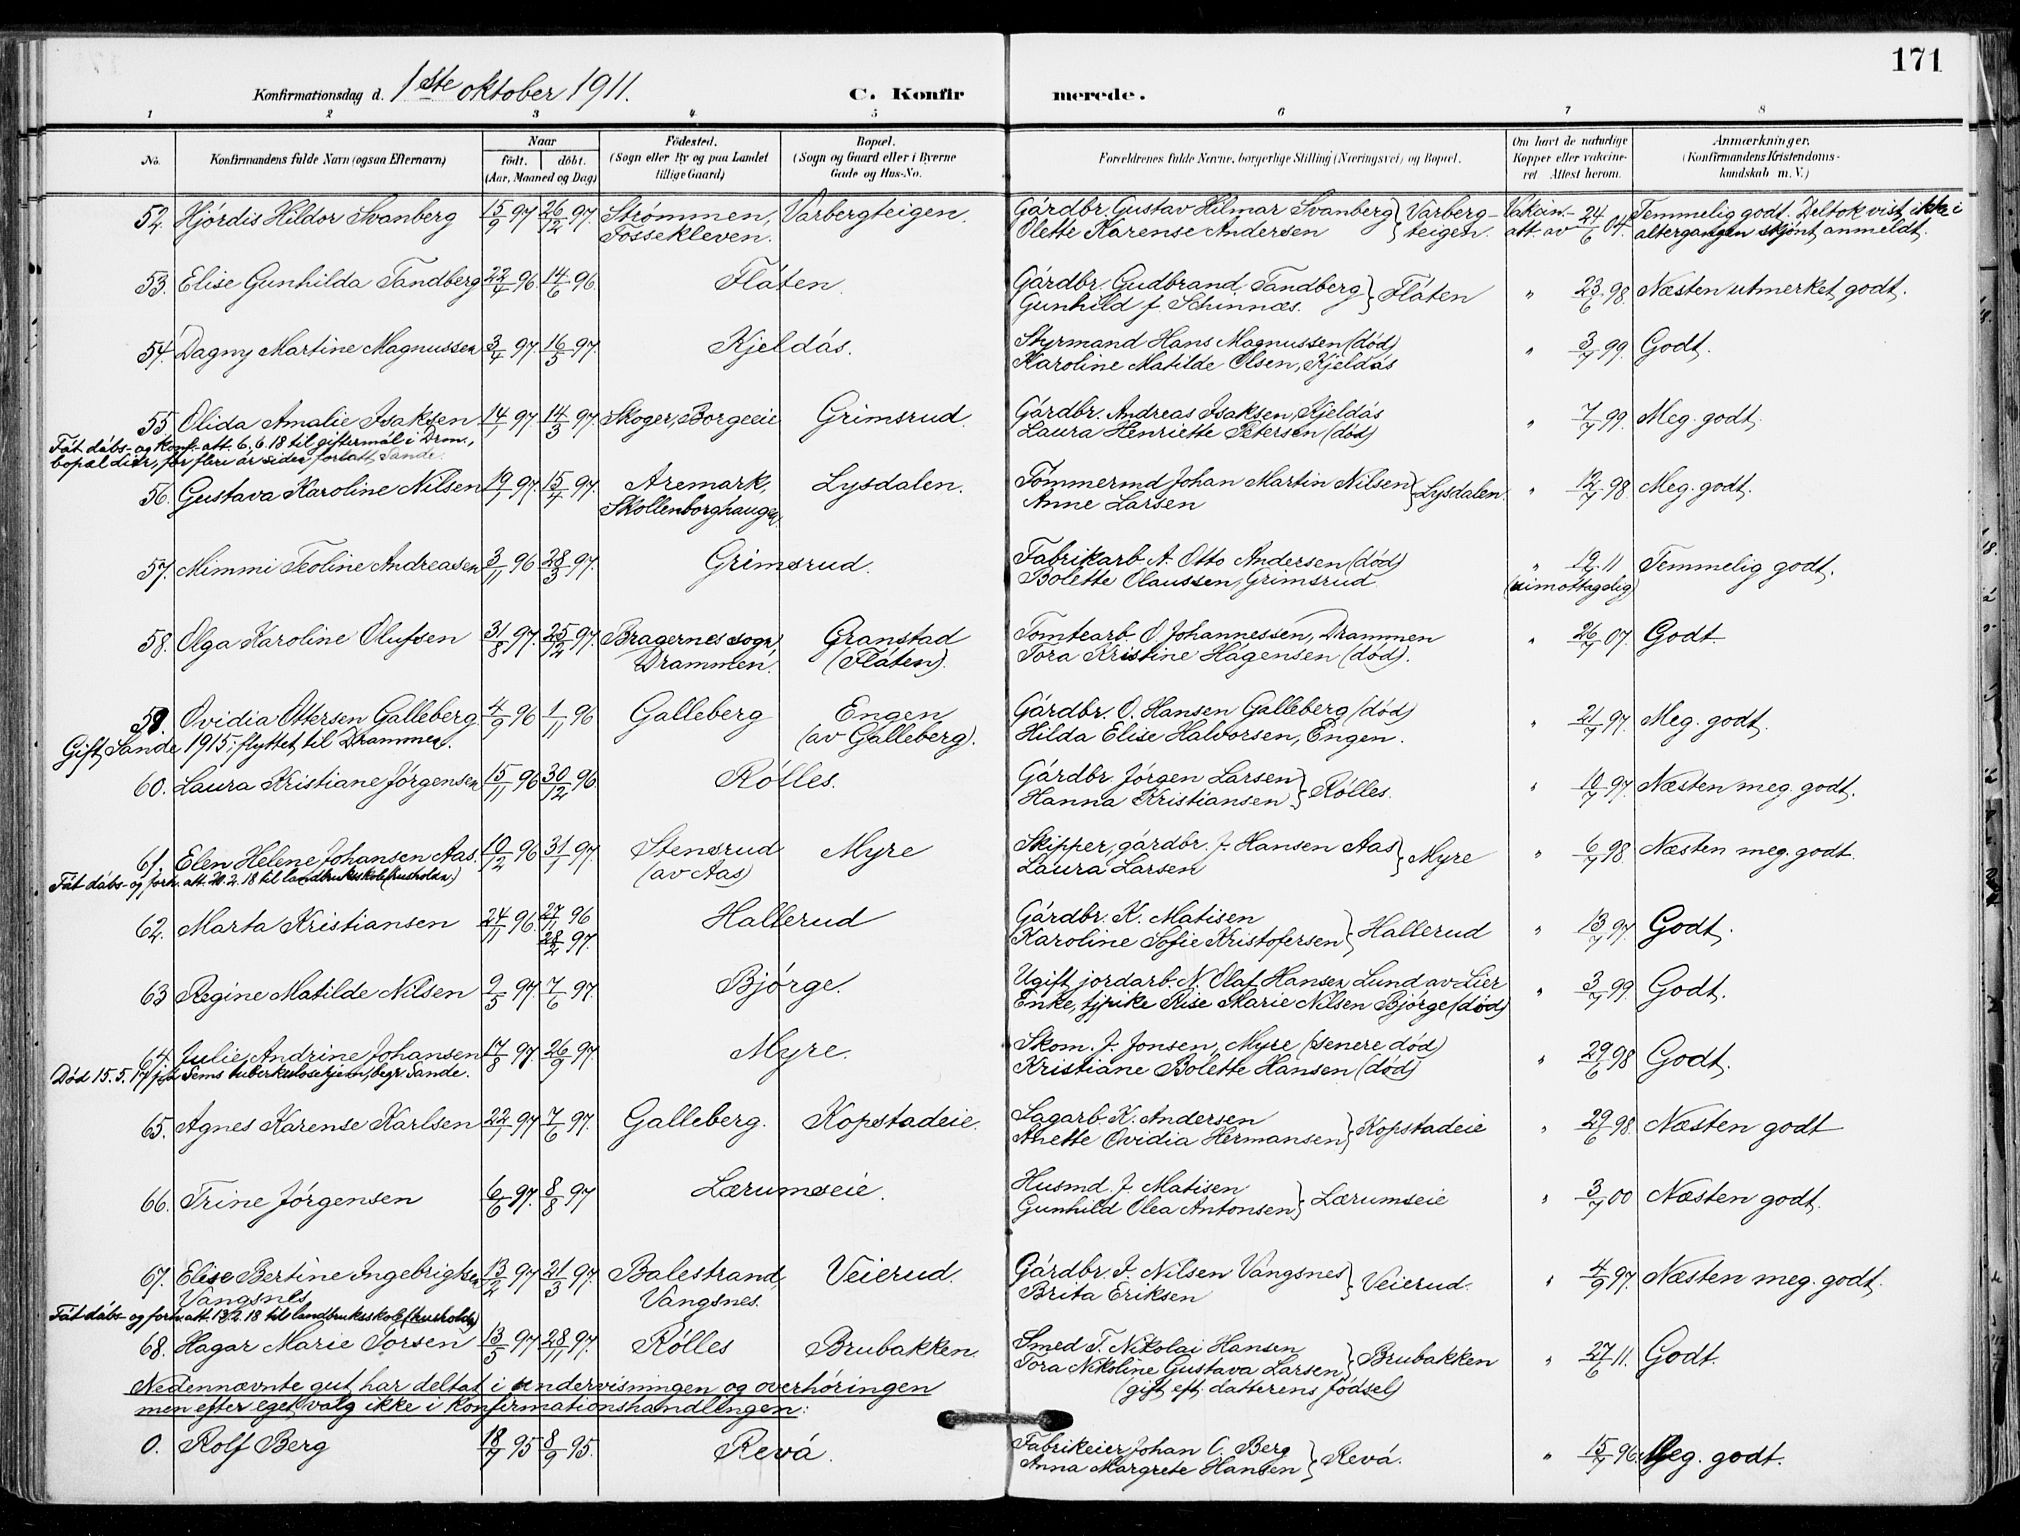 171
Konfirmationsdag d. 1ste oktober 1911. C. Konfirmerede.
1 2 3 4 5 6 7 8
No. Konfirmandens fulde Navn (ogsaa Efternavn) Naar født. døbt. (Aar, Maaned og Dag) Fødested. (Sogn eller By og paa Landet tillige Gaard) Bopæl. (Sogn og Gaard eller i Byerne Gade og Hus-No. Forældrenes fulde Navne, borgerlige Stilling (Næringsvei) og Bopæl. Om havt de naturlige Kopper eller vakcineret Attest herom. Anmærkninger, (Konfirmandens Kristendomskundskab m. V.)
52. Hjórdis Hildor Svanberg 15/9 97 26/12 97. Strómmen, Varbergteigen. Gárdbr. Gustav Hilmar Svanberg } Varberg- Vakcin.- 24/6 04. Temmelig godt. Deltok vist ikke i
Fossekleven. Olette Karense Andersen teigen. att. av altergangen skjónt anmeldt.
53. Elise Gunhilda Tandberg 22/4 96 14/6 96. Fláten. Gárdbr. Gudbrand Tandberg } Fláten " 23/6 98 Næsten utmerket godt.
Gunhild f. Schinnæs.
54. Dagny Martine Magnussen 3/4 97. 16/5 97. Kjeldás. Styrmand Hans Magnussen (dód) " 3/7 99. Godt.
Karoline Matilde Olsen, Kjeldás
55. Olida Amalie Isaksen 14/1 97 14/3 97. Skoger, Borgeeie Grimsrud. Gárdbr. Andreas Isaksen, Kjeldás " 7/7 99. Meg. godt.
Laura Henriette Petersen (dód)
Fát dábs- og konf.-att. 6.6.18 til giftermál i Drm.,
bopæl dér, for flere ár siden forlatt Sande.
56. Gustava Karoline Nilsen 19/1 97. 15/4 97. Aremark, Lysdalen. Tómmermd Johan Martin Nilsen } Lysdalen " 12/7 98 Meg. godt.
Skollenborghaugen. Anne Larsen
57. Mimmi Teoline Andreasen 3/11 96 28/3 97. Grimsrud. Fabrikarb. A. Otto Andersen (dód) " 19/6 11 Temmelig godt.
Bolette Olaussen, Grimsrud (uimottagelig)
58. Olga Karoline Olufsen 31/8 97. 25/12 97. Bragernes sogn, Granstad Tomtearb. O. Johannessen, Drammen " 26/7 07. Godt
Drammen. (Fláten). Tora Kristine Hágensen (dód).
59. Ovidia Ottersen Galleberg 4/9 96 1/11 96 Galleberg Engen Gárdbr. O. Hansen Galleberg (dód) " 21/7 97. Meg. godt.
(av Galleberg). Hilda Elise Halvorsen, Engen.
Gift, Sande, 1915; flyttet til Drammen.
60. Laura Kristiane Jórgensen 15/11 96 30/12 96. Rólles. Gárdbr. Jórgen Larsen } Rólles. " 10/7 97. Næsten meg. godt.
Hanna Kristiansen
61. Elen Helene Johansen Aas. 10/12 96 31/1 97. Stensrud Myre Skipper, gárdbr. J. Hansen Aas } Myre " 6/7 98. Næsten meg. godt.
(av Aas) Laura Larsen
Fát dábs- og forh. att. 20.2.18 til landbruksskole (husholdn.)
62. Marta Kristiansen 24/11 96. 27/11 96 28/2 97. Hallerud Gárdbr. K. Matisen } Hallerud " 13/7 97. Godt.
Karoline Sofie Kristofersen
63 Regine Matilde Nilsen 9/5 97 7/6 97. Bjórge. Ugift jordarb. N. Olaf Hansen Lund av Lier " 3/7 99. Godt.
Enke, tjpike Rise Marie Nilsen Bjórge (dód)
64. Julie Andrine Johansen 17/8 97 26/9 97. Myre. Skom. J. Jonsen, Myre (senere dód) " 29/6 98 Godt.
Kristiane Bolette Hansen (dód)
Dód 15.5.17 pá Sems tuberkulosehjem, begr. Sande.
65. Agnes Karense Karlsen 22/1 97 7/6 97. Galleberg. Kopstadeie. Sagarb. K. Andersen } Kopstadeie " 29/6 98. Næsten godt
Anette Ovidia Hermansen
66. Trine Jórgensen 6/6 97. 8/8 97 Lærumseie. Husmd J. Matisen } Lærumseie " 3/7 00 Næsten godt.
Gunhild Olea Antonsen
67. Elise Bertine Ingebrigtsen 13/2 97 21/3 97. Balestrand, Veierud. Gárdbr. I. Nilsen Vangsnes } Veierud. " 4/9 97. Næsten meg. godt.
Vangsnes Vangsnes. Brita Eriksen
Fát dábs- og forh. att. 13.2.18 til landbruksskole (husholdn.)
68. Hagar Marie Torsen 13/5 97 28/11 97. Rólles Brubakken. Smed T. Nikolai Hansen } Brubakken " 27/6 11. Godt.
Tora Nikoline Gustava Larsen
(gift eft. datterens fódsel)
Nedennævnte gut har deltat i undervisningen og overhóringen
men efter eget valg ikke i konfirmationshandlingen:
0. Rolf Berg 18/7 95 8/9 95. Revá. Fabrikeier Johan C. Berg } Revá. " 15/7 96. Meg. godt.
Anna Margrete Hansen